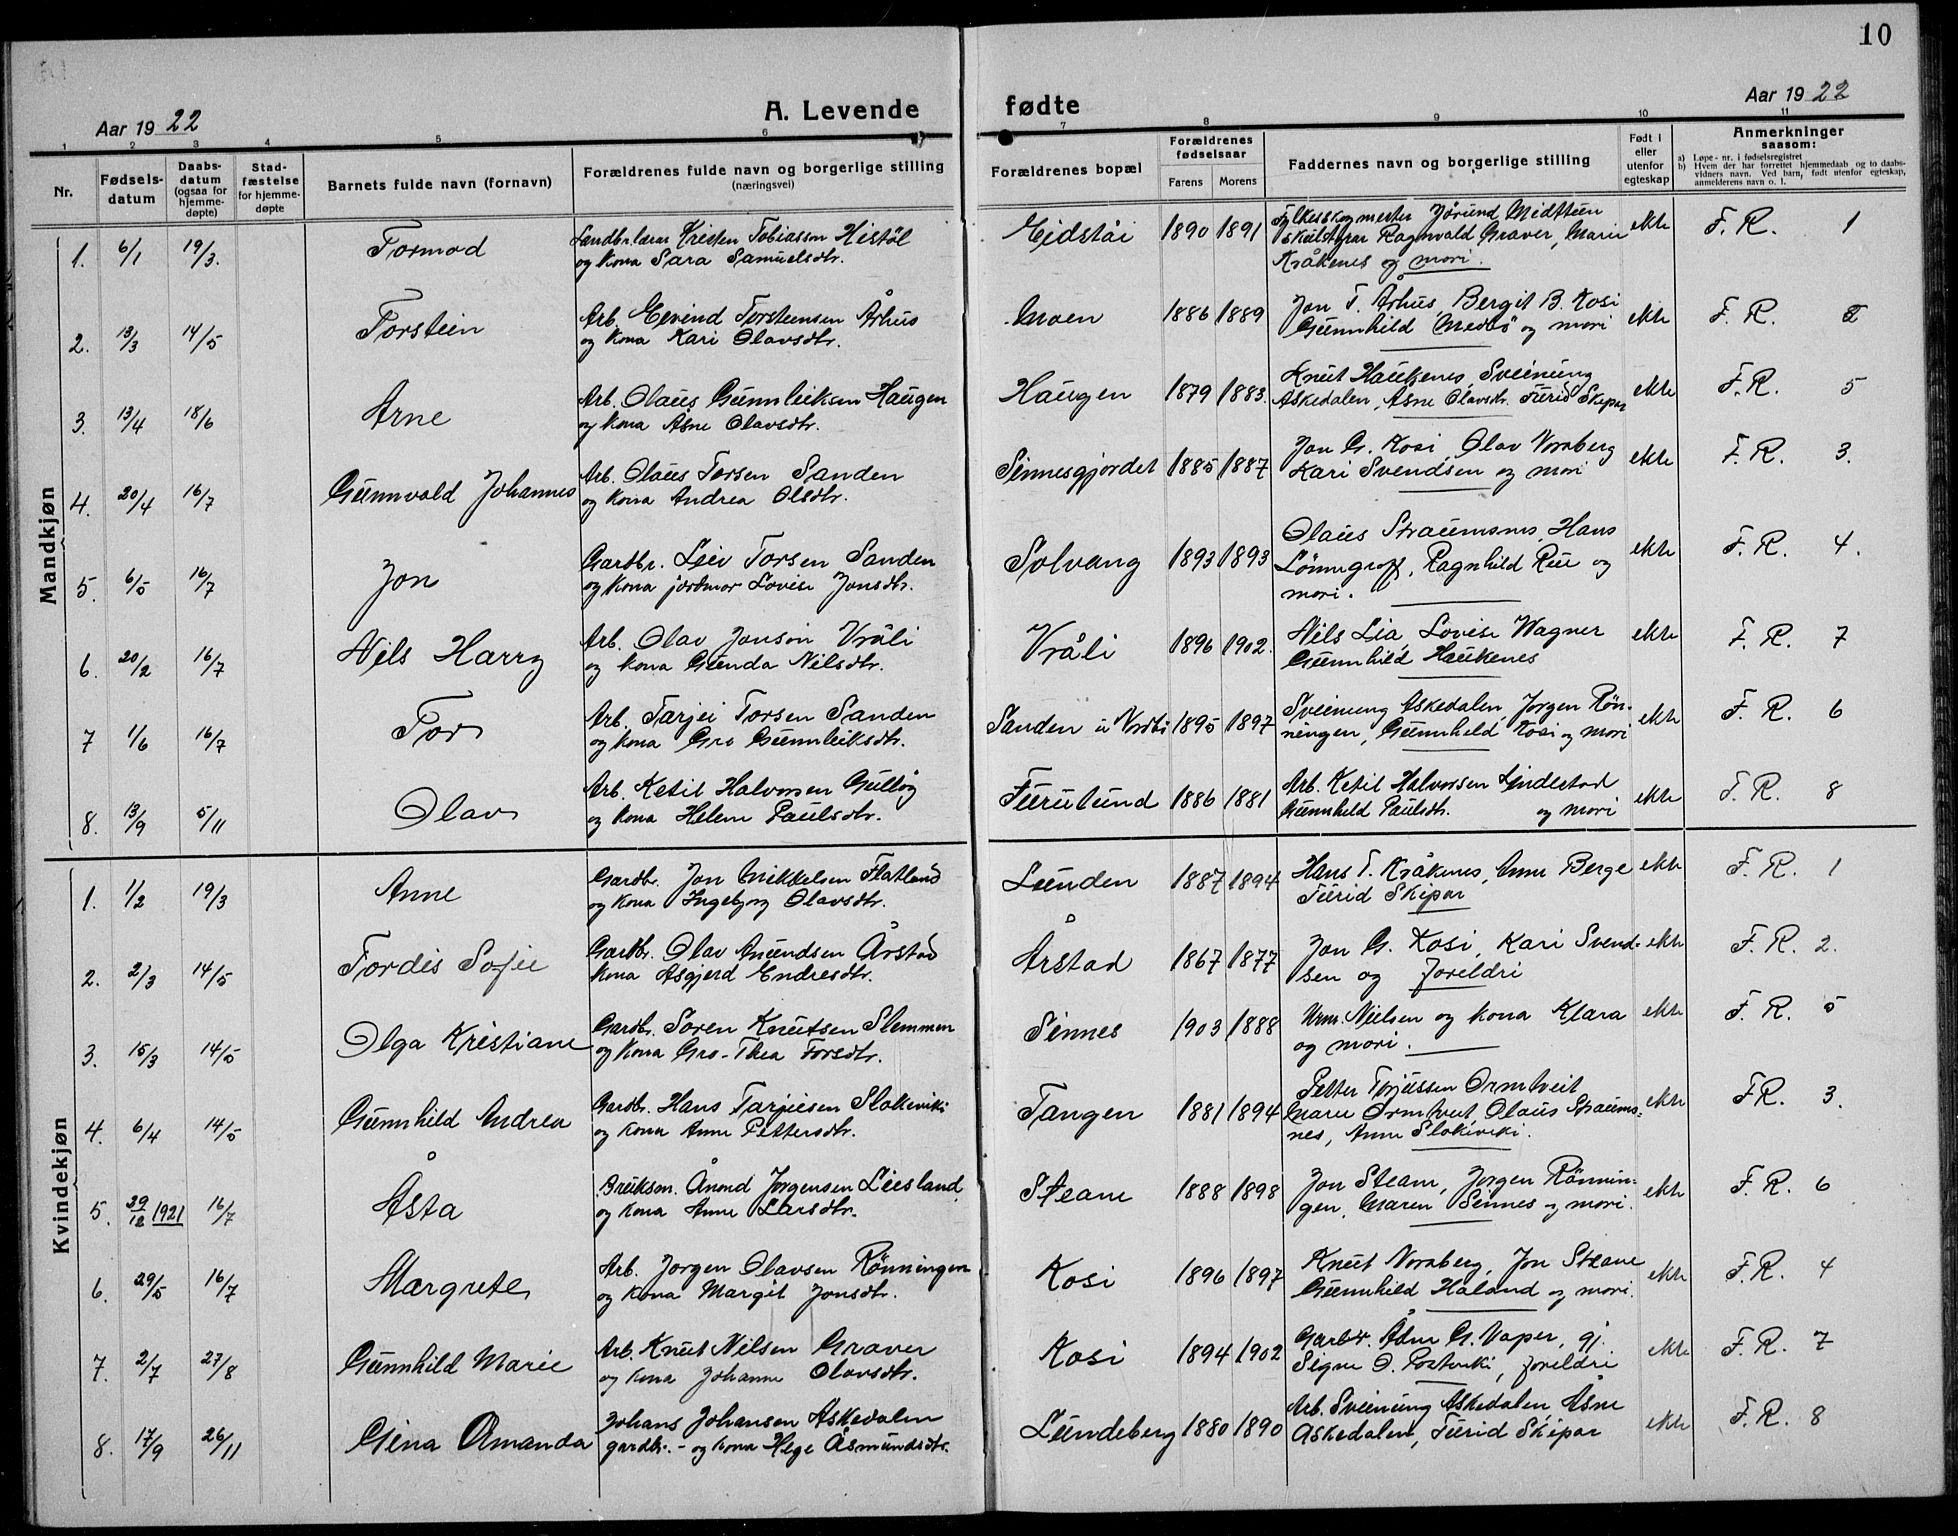 10
Aar 1922
A. Levende fødte
Aar 1922
1 2 3 4 5 6 7 8 9 10 11
Nr.
Fødsels-
datum
Daabs-
datum
(ogsaa for
hjemme-
døpte)
Stad-
fæstelse
for hjemme-
døpte
Barnets fulde navn (fornavn)
Forældrenes fulde navn og borgerlige stilling
(næringsvei)
Forældrenes bopæl
Forældrenes
fødselsaar
Farens Morens
Faddernes navn og borgerlige stilling
Født i
eller
utenfor
egteskap
Anmerkninger
saasom:
a) Løpe-nr. i fødselsregistret
b) Hvem der har forrettet hjemmedaab og to daabs-
vidners navn. Ved barn, født utenfor egteskap,
anmelderens navn o. l.
Mandkjøn
1. 6/1 19/3. Tormod
Landbr.lærar Kristen Tobiasson Histöl
og kona Sara Samuelsdtr.
Eidstöi 1890 1891
Fylkesskogmester Jörund Midttun
Ragnvald Graver, Marie
Kråkenes og mori.
ekte F. R. 1
2. 13/3 14/5 Torstein
Arb. Eivind Torsteinsen Århus
og kona Kari Olavsdtr.
Moen 1886 1889
Jon T. Århus, Bergit B. Kosi
Gunnhild Medös og mori
ekte F. R. 2
3. 13/4 18/6 Arne
Arb. Olaus Gunnleiksen Haugen
og kona Åsne Olavsdtr.
Haugen 1879 1883.
Knut Haukenes, Sveinung
Askedalen, Åsne Olavsdtr. Turid Skipar
ekte F. R. 5
4. 20/4 16/7 Gunnvald Johannes
Arb. Olaus Torsen Sanden
og kona Andrea Olsdtr.
Sinnesgjordet 1885 1887
Jon G. Kosi, Olav Noraberg
Kari Svendsen og mori
ekte F. R. 3.
5. 6/5 16/7 Jon
Gardbr. Leiv Torsen Sanden
og kona jordmor Lovise Jonsdtr.
Solvang 1893 1893
Olaus Straumsnes, Hans
Lönnegroff, Ragnhild Rui og
mori.
ekte F. R. 4.
6. 20/2 16/7 Nils Harry
Arb. Olav Jonson Vråli
og kona Gunda Nilsdtr.
Vråli 1896 1902.
Nils Lia, Lovise Wagner
Gunnhild Haukenes
ekte F. R. 7
7 1/6 16/7 Tor
Arb. Tarjei Torsen Sanden
og kona Gro Gunnleiksdtr.
Sanden u Vrdbö 1895 1897
Sveinung Askedalen, Jörgen Rön-
ningen, Gunnhild Kosi og mori
ekte F. R. 6
8. 13/9 5/11 Olav
Arb. Ketil Halvorsen Gullög
og kona Helene Paulsdtr.
Furulund 1886 1881
Arb. Ketil Halvorsen Lindestad
Gunnhild Paulsdtr. og mori
ekte F. R. 8
Kvindekjøn
1. 1/2 19/3 Anne
Gardbr. Jon Mikkelsen Flatland
og kona Ingebjorg Olavsdtr.
Lunden 1887 1894
Hans T. Kråkenes, Anne Berge
Turid Skipar
ekte F. R. 1
2. 2/3 14/5 Tordis Sofie
Gardbr. Olav Anundsen Årstad
kona Asgjerd Endresdtr.
Årstad 1867 1877
Jon G. Kosi, Kari Svend-
sen og foreldri
ekte F. R. 2.
3. 15/3 14/5 Olga Kristiane
Gardbr. Sören Knutsen Slemmen
og kona Gro-Thea Torsdtr.
Sinnes 1903 1888
Urm. Nielsen og kona Klara
og mori.
ekte F. R. 5
4. 6/4 14/5 Gunnhild Andrea
Gardbr. Hans Tarjeisen Slokeviki
og kona Anne Pettersdtr.
Tangen 1881 1894
Petter Torjussen Ormtveit
Marie Ormtveit Olaus Straums-
nes, Anne Slokiviki.
ekte F R. 3.
5. 29/12 1921 16/7 Åsta
Bruksm. Ånond Jörgensen Liesland
og kona Anne Larsdtr.
Steane 1888 1898
Jon Steane, Jörgen Rönnin-
gen, Maren Sinnes og mori.
ekte F. R. 6
6. 29/5 16/7 Margrete
Arb. Jorgen Olavsen Rönningen
og kona Margit Jonsdtr.
Kosi 1896 1897
Knut Noraberg, Jon Steane
Gunnhild Haland og mori.
ekte F. R. 4
7. 2/7 27/8 Gunnhild Marie
Arb. Knut Nilsen Graver
og kona Johanne Olavsdtr.
Kosi 1894 1902
Gardbr. Ådne G. Vaper, gj.
Signe O. Postviki, foreldri
ekte F. R. 7
8. 17/9 26/11 Gina Amanda
Johans Johansen Askedalen
gardbr. - og kona Hege Åsmundsdtr.
Lundeberg 1880 1890
Arb. Sveinung Askedalen Åsne
Askedalen, Turid Skipar
ekte F. R. 8